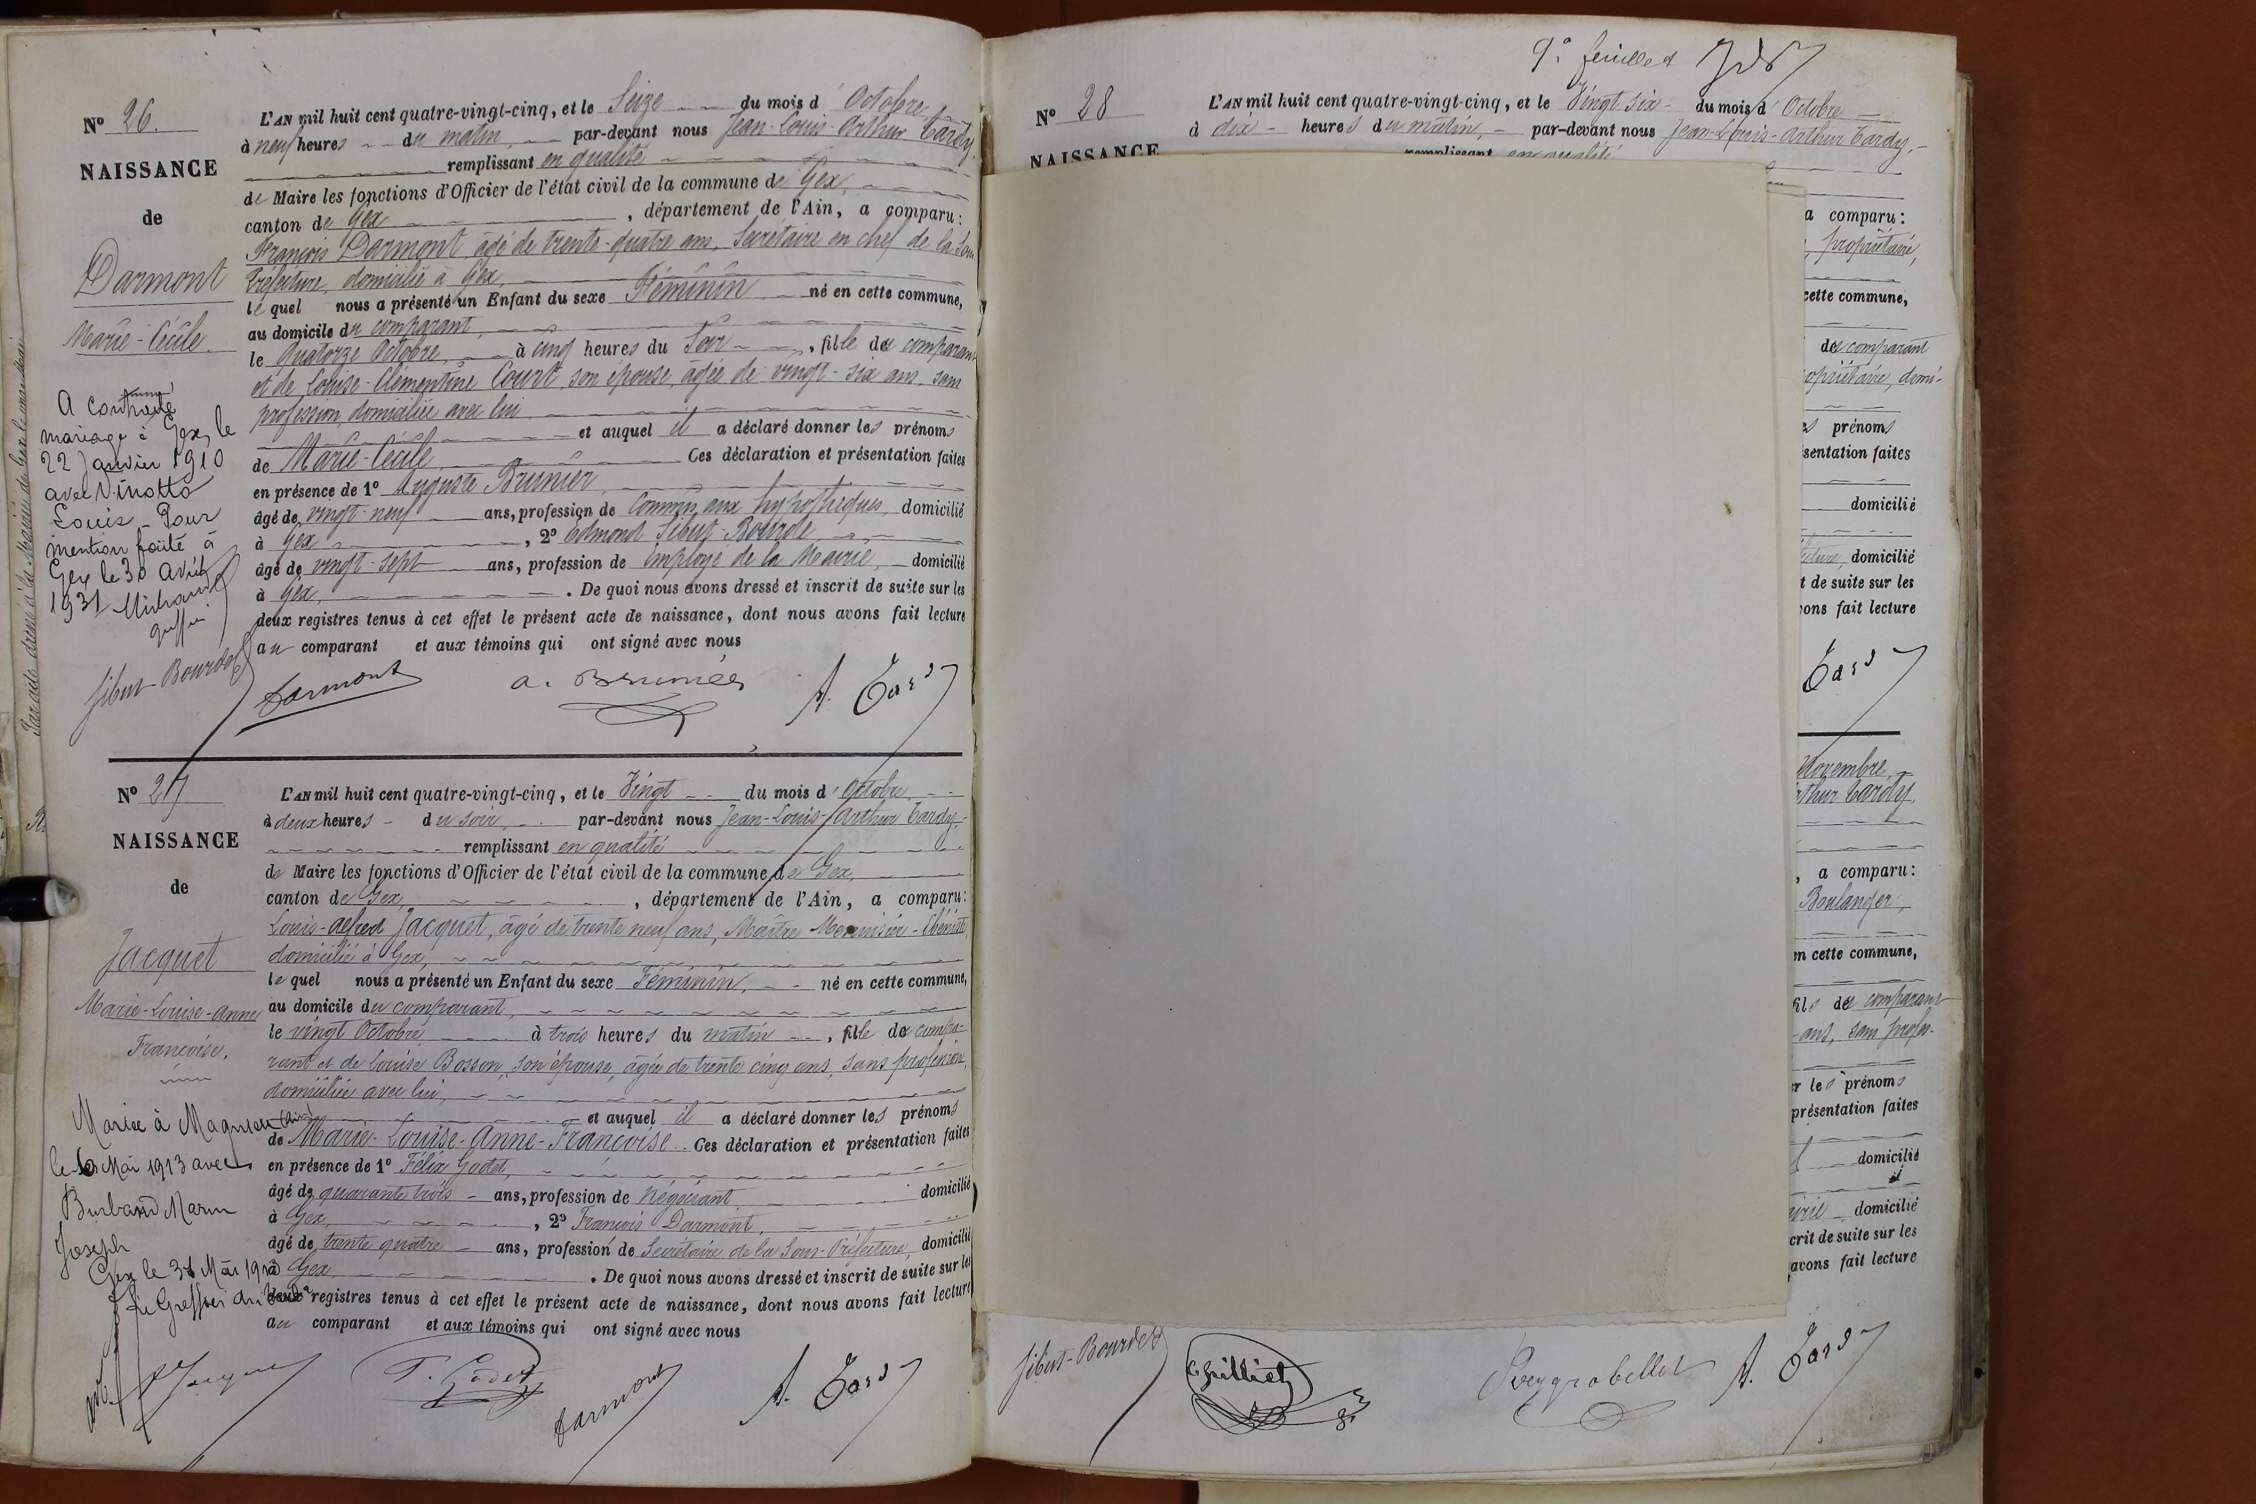 Nº 26.
NAISSANCE
de
Darmont
Marie-Cécile.
L'AN mil huit cent quatre-vingt-cinq, et le Seize du mois d'Octobre
à neuf heures du matin, par-devant nous Jean-Louis-Arthur Tardy,
remplissant en qualité
de Maire les fonctions d'Officier de l'état civil de la commune de Gex,
canton de Gex, département de l'Ain, a comparu:
François Darmont, âgé de trente-quatre ans, Secrétaire en chef de la Sous
Préfecture, domicilié à Gex,
lequel nous a présenté un Enfant du sexe Féminin né en cette commune,
au domicile du comparant,
le Quatorze Octobre, à cinq heures du Soir, fille du comparant
et de Louise-Clémentine Court, son épouse, âgée de vingt-six ans, sans
profession, domiciliée avec lui
et auquel il a déclaré donner les prénoms
de Marie-Cécile Ces déclaration et présentation faites
en présence de 1º Auguste Brunier,
âgé de vingt-neuf ans, profession de Commis aux hypothèques, domicilié
à Gex, 2º Edmond Sibut-Bourde
âgé de vingt-sept ans, profession de Employé de la Mairie, domicilié
à Gex, . De quoi nous avons dressé et inscrit de suite sur les
deux registres tenus à cet effet le présent acte de naissance, dont nous avons fait lecture
au comparant et aux témoins qui ont signé avec nous
A contracté
mariage à Gex, le
22 Janvier 1910
avec Vinotto
Louis. Pour
mention faite à
Gex le 30 avril
1931
Sibut-Bourde Darmont A. Brunier A. Tardy
Nº 27
NAISSANCE
de
Jacquet
Marie-Louise-Anne
Françoise.
L'AN mil huit cent quatre-vingt-cinq, et le Vingt du mois d'Octobre
à deux heures du soir, par-devant nous Jean-Louis-Arthur Tardy,
remplissant en qualité
de Maire les fonctions d'Officier de l'état civil de la commune de Gex,
canton de Gex, département de l'Ain, a comparu:
Louis-Alfred Jacquet, âgé de trente neuf ans, Maître Menuisier-Ebéniste,
domicilié à Gex,
lequel nous a présenté un Enfant du sexe Féminin, né en cette commune,
au domicile du comparant,
le vingt Octobre à trois heures du matin, fille du compa-
rant et de Louise Bosson, son épouse, âgée de trente cinq ans, sans profession,
domiciliée avec lui,
et auquel il a déclaré donner les prénoms
de Marie-Louise-Anne-Françoise. Ces déclaration et présentation faites
en présence de 1º Félix Godet,
âgé de quarante trois ans, profession de Négociant domicilié
à Gex, 2º François Darmont,
âgé de trente quatre ans, profession de Secrétaire de la Sous-Préfecture, domicilié
à Gex, . De quoi nous avons dressé et inscrit de suite sur les
deux registres tenus à cet effet le présent acte de naissance, dont nous avons fait lecture
au comparant et aux témoins qui ont signé avec nous
Mariée à Magnieu (Ain)
le Mai 1913 avec
Burband
Joseph
Gex le 31 Mai
Le Greffier
Jacquet F. Godet Darmont A. Tardy
9º feuillet
Nº 28
NAISSANCE
L'AN mil huit cent quatre-vingt-cinq, et le Vingt six du mois d'Octobre
à dix heures du matin, par-devant nous Jean-Louis-Arthur Tardy,
remplissant en qualité
a comparu:
propriétaire,
cette commune,
du comparant
opriétaire, domi-
s prénoms
sentation faites
domicilié
ecture, domicilié
t de suite sur les
vons fait lecture
Tardy
Novembre
rthur Tardy,
, a comparu:
Boulanger,
en cette commune,
fils du comparant
ans, sans profes-
r les prénoms
présentation faites
domicilié
airie, domicilié
crit de suite sur les
avons fait lecture
Sibut-Bourde A. Tardy